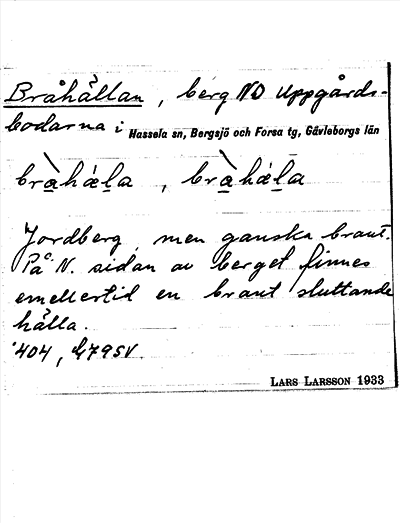 Bråhällan, berg NO Uppgårds-
bodarna i Hassela sn, Bergsjö och Forsa tg, Gävleborgs län
bràhǽla, bràhǽla
Jordberg, men ganska brant.
På N. sidan av berget finnes
emellertid en brant sluttande
hälla.
404,
LARS LARSSON 1933